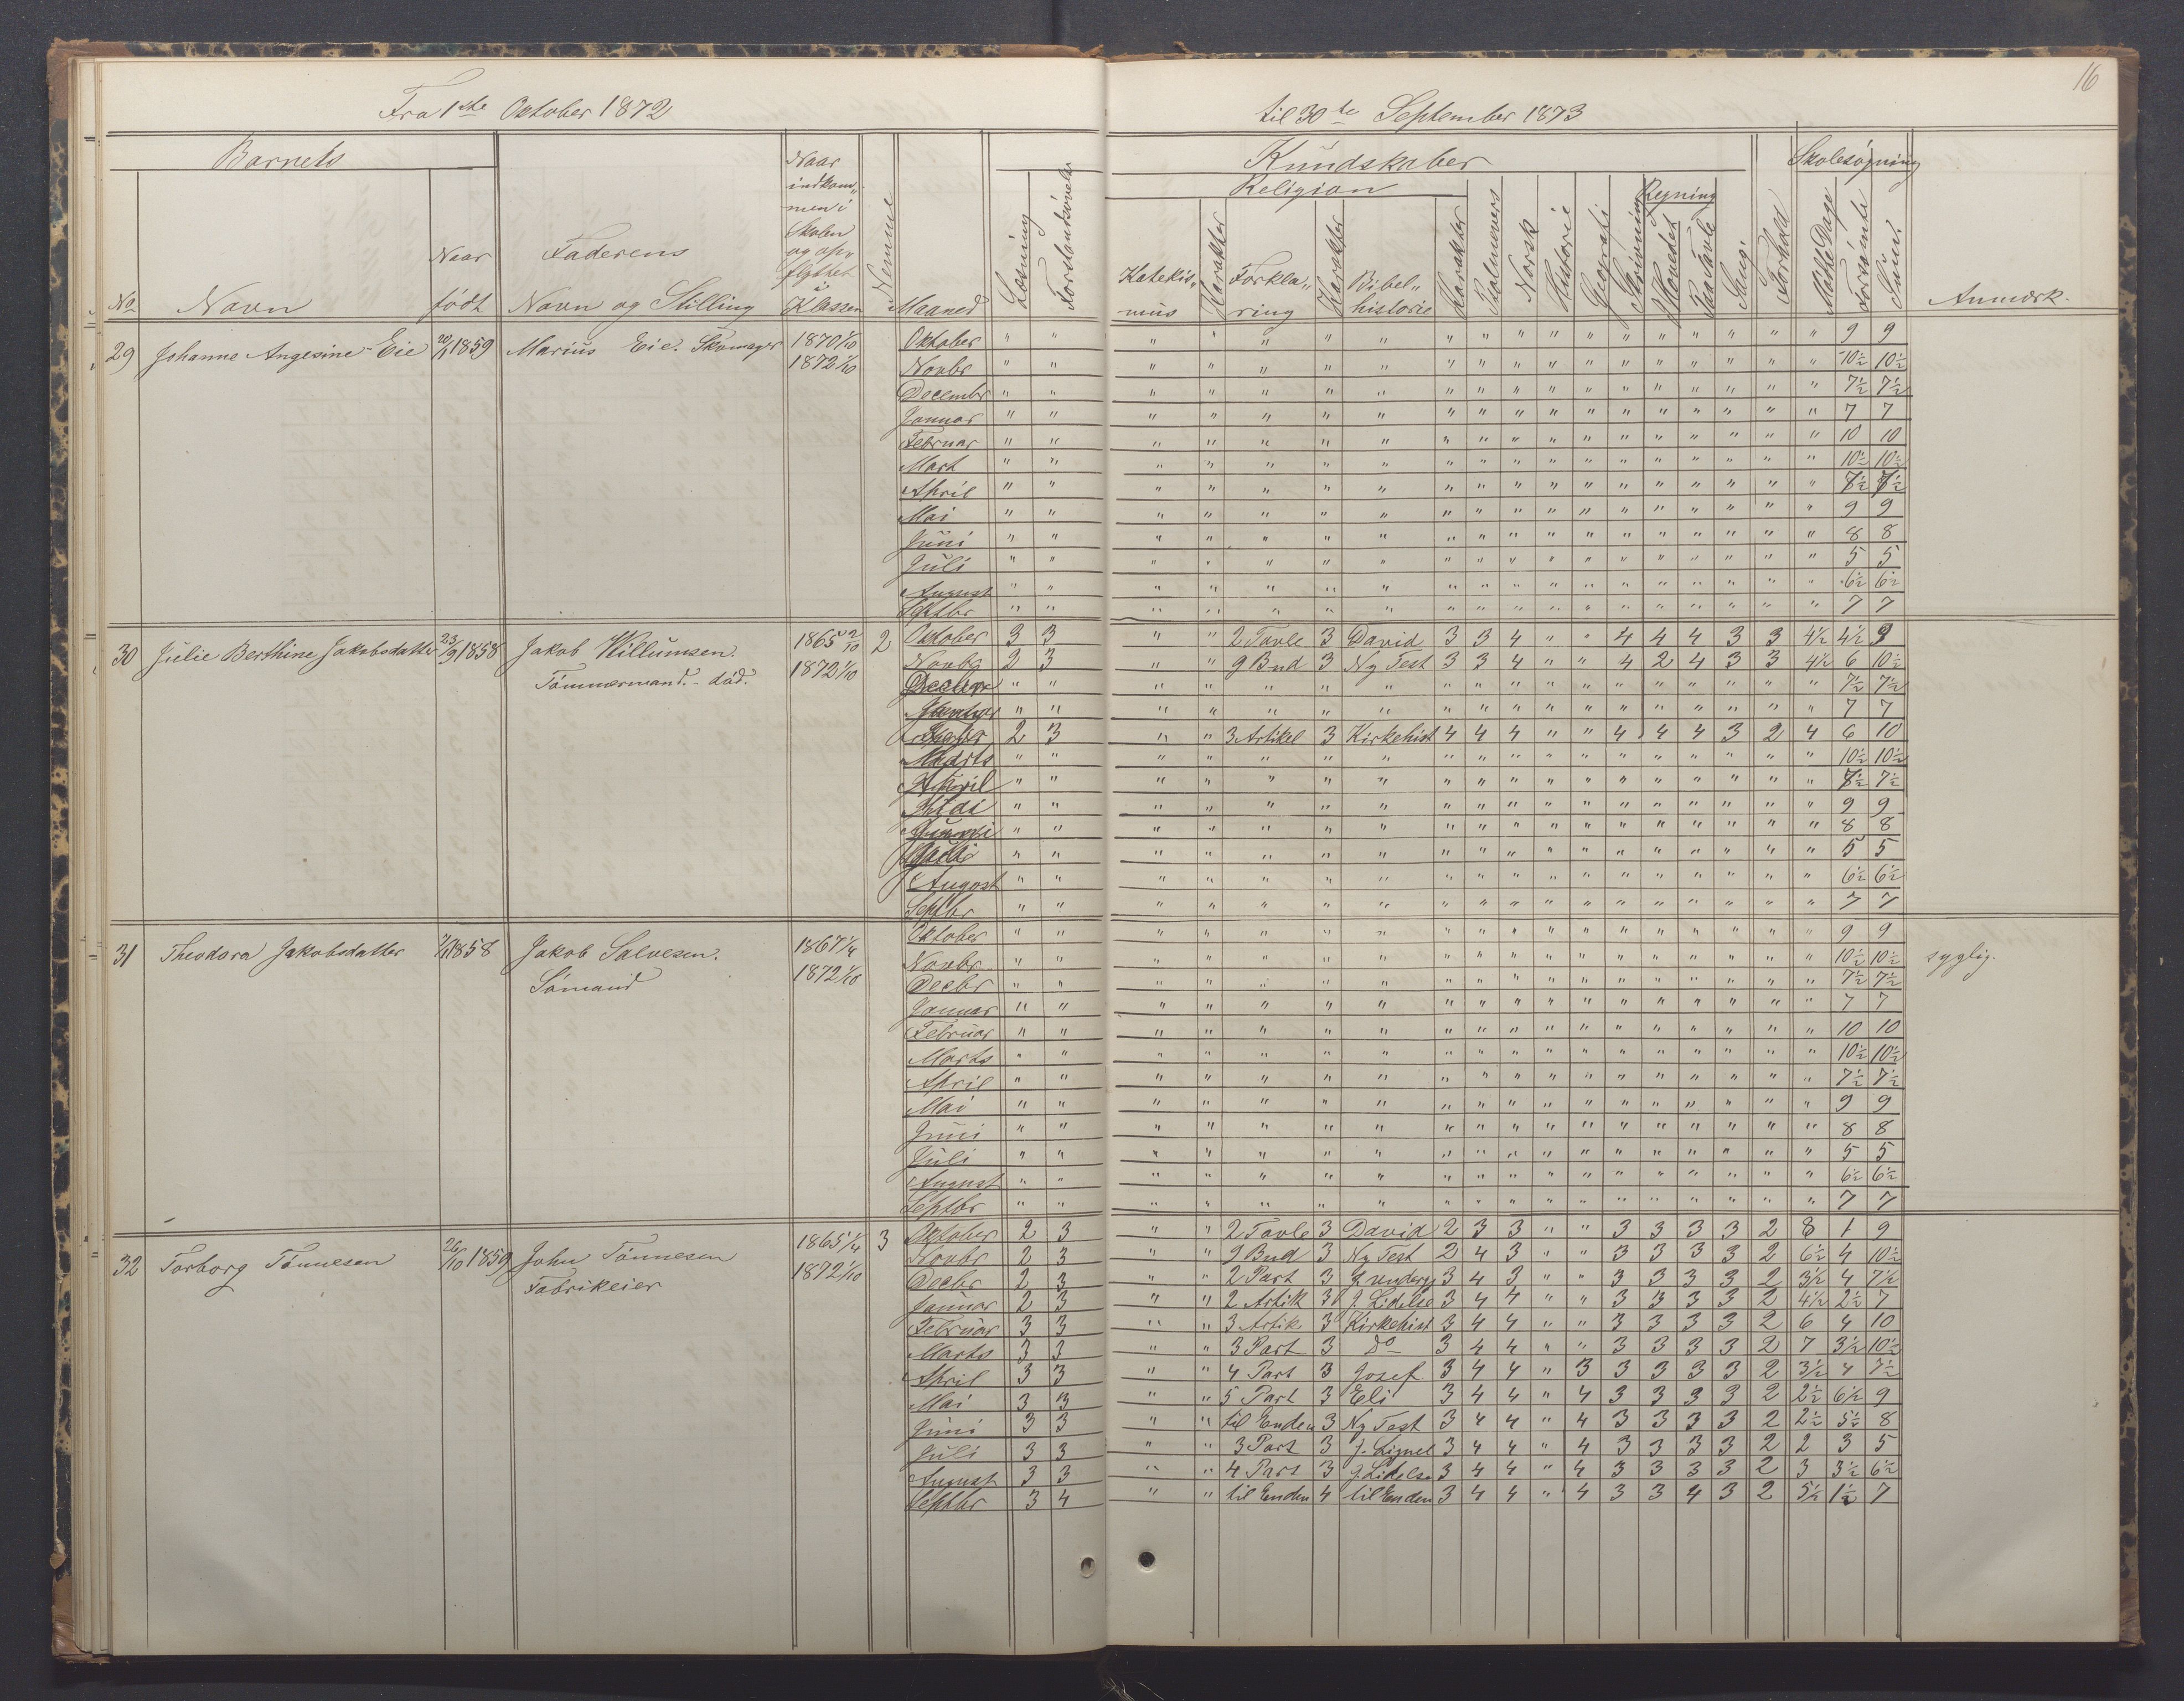 16
Fra 1ste Oktober 1872 til 30te September 1873
Barnets Kundskaber Skolesøgning
Religion Regning
No Navn Naar født Faderens Navn og Stilling Naar indkommen i Skolen og opflyttet i Klassen Nemme Maaned Læsning Forstandsøvelse Katekismus Karakter Forklaring Karakter Bibelhistorie Karakter Psalmevers Norsk Historie Geografi Skrivning Hovedet Paa Tavle Sang Forhold Mødte Dage Forsømte Sum. Anmærk.
29 Johanne Angesine Eie 1859 Marius Eie. Skomager 1870 1/10 Oktober " " " " " " " " " " " " " " " " " " " 9 9
1872 1/10 Novbr " " " " " " " " " " " " " " " " " " " 10½ 10½
Decembr " " " " " " " " " " " " " " " " " " " 7½ 7½
Januar " " " " " " " " " " " " " " " " " " " 7 7
Februar " " " " " " " " " " " " " " " " " " " 10 10
Mart " " " " " " " " " " " " " " " " " " " 10½ 10½
April " " " " " " " " " " " " " " " " " " " 7½ 7½
Mai " " " " " " " " " " " " " " " " " " " 9 9
Juni " " " " " " " " " " " " " " " " " " " 8 8
Juli " " " " " " " " " " " " " " " " " " " 5 5
August " " " " " " " " " " " " " " " " " " " 6½ 6½
Septbr " " " " " " " " " " " " " " " " " " " 7 7
30 Julie Berthine Jakobsdatter 23/9 1858 Jakob Willumsen. 1865 2/10 2 Oktober 3 3 " " 2 Tavle 3 David 3 3 4 " " 4 4 4 3 3 4½ 4½ 9
Tømmermand. - død. 1872 1/10 Novbr 2 3 " " 9 Bud 3 Ny Test 3 3 4 " " 4 2 4 3 3 4½ 6 10½
Decbr " " " " " " " " " " " " " " " " " " " 7½ 7½
Januar " " " " " " " " " " " " " " " " " " " 7 7
Febr 2 3 " " 3 Artikel 3 Kirkehist 4 4 4 " " 4 4 4 3 2 4 6 10
Marts " " " " " " " " " " " " " " " " " " " 10½ 10½
April " " " " " " " " " " " " " " " " " " " 7½ 7½
Mai " " " " " " " " " " " " " " " " " " " 9 9
Juni " " " " " " " " " " " " " " " " " " " 8 8
Juli " " " " " " " " " " " " " " " " " " " 5 5
August " " " " " " " " " " " " " " " " " " " 6½ 6½
Septbr " " " " " " " " " " " " " " " " " " " 7 7
31 Theodora Jakobsdatter 1858 Jakob Salvesen. 1867 1/4 Oktober " " " " " " " " " " " " " " " " " " " 9 9 syglig.
Sømand 1872 1/10 Novbr " " " " " " " " " " " " " " " " " " " 10½ 10½
Decbr " " " " " " " " " " " " " " " " " " " 7½ 7½
Januar " " " " " " " " " " " " " " " " " " " 7 7
Februar " " " " " " " " " " " " " " " " " " " 10 10
Marts " " " " " " " " " " " " " " " " " " " 10½ 10½
April " " " " " " " " " " " " " " " " " " " 7½ 7½
Mai " " " " " " " " " " " " " " " " " " " 9 9
Juni " " " " " " " " " " " " " " " " " " " 8 8
Juli " " " " " " " " " " " " " " " " " " " 5 5
August " " " " " " " " " " " " " " " " " " " 6½ 6½
Septbr " " " " " " " " " " " " " " " " " " " 7 7
32 Torborg Tønnesen 26/10 1859 John Tønnesen 1865 1/4 3 Oktober 2 3 " " 2 Tavle 3 David 2 3 3 " " 3 3 3 3 2 8 1 9
Fabrikeier 1872 1/10 Novbr 2 3 " " 9 Bud 3 Ny Test 2 4 3 " " 3 3 3 3 2 6½ 4 10½
Decbr 2 3 " " 2 Part 3 J. underg 3 4 3 " " 3 3 3 3 2 3½ 4 7½
Januar 2 3 " " 2 Artik 3 J. Lidelse 3 4 4 " " 3 3 3 3 2 4½ 2½ 7
Februar 3 3 " " 3 Artik 3 Kirkehist 3 4 4 " " 3 3 3 3 2 6 4 10
Marts 3 3 " " 3 Part 3 Do 3 4 4 " " 3 3 3 3 2 7 3½ 10½
April 3 3 " " 4 Part 3 Josef 3 4 4 " 3 3 3 3 3 2 3½ 4 7½
Mai 3 3 " " 5 Part 3 Eli 3 4 4 " 4 3 3 3 3 2 2½ 6½ 9
Juni 3 3 " " til Enden 3 Ny Test 3 4 4 " 4 3 3 3 3 2 2½ 5½ 8
Juli 3 3 " " 3 Part 3 J. Lignel 3 4 4 " 4 3 3 3 3 2 2 3 5
August 3 3 " " 4 Part 3 J. Lidelse 3 4 4 " 4 3 3 3 3 2 3 3½ 6½
Septbr 3 4 " " til Enden 4 til Enden 3 4 4 " 4 3 3 4 3 2 5½ 1½ 7